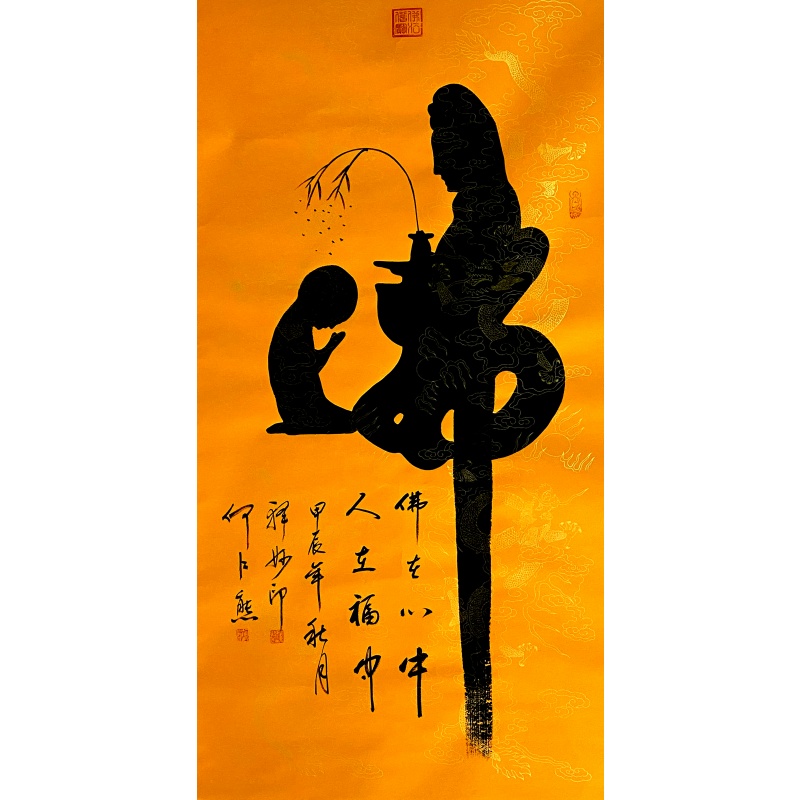 佛
佛在心中
人在福中
甲辰年秋月
释妙印
何卜熊